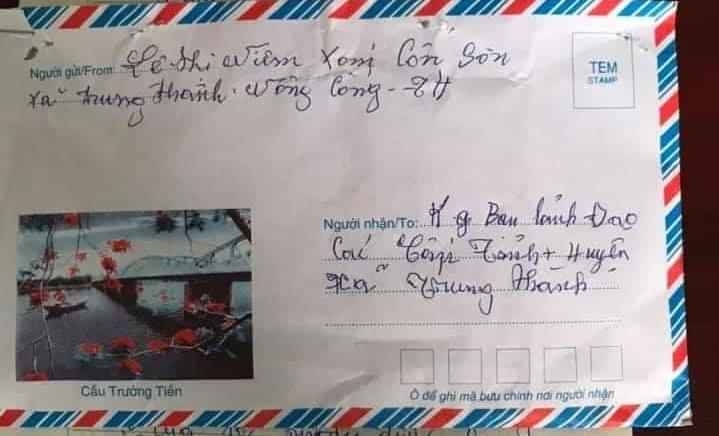 Người gửi/From: Lê Thị Viêm Xóm Côn Sơn
Xã Trung Thành. Nông Cống - TH
TEM
STAMP
Người nhận/To: K g Ban lãnh Đạo
Các Cấp Tỉnh + Huyện
Xã Trung Thành
Cầu Trường Tiền
Ô để ghi mã bưu chính nơi người nhận